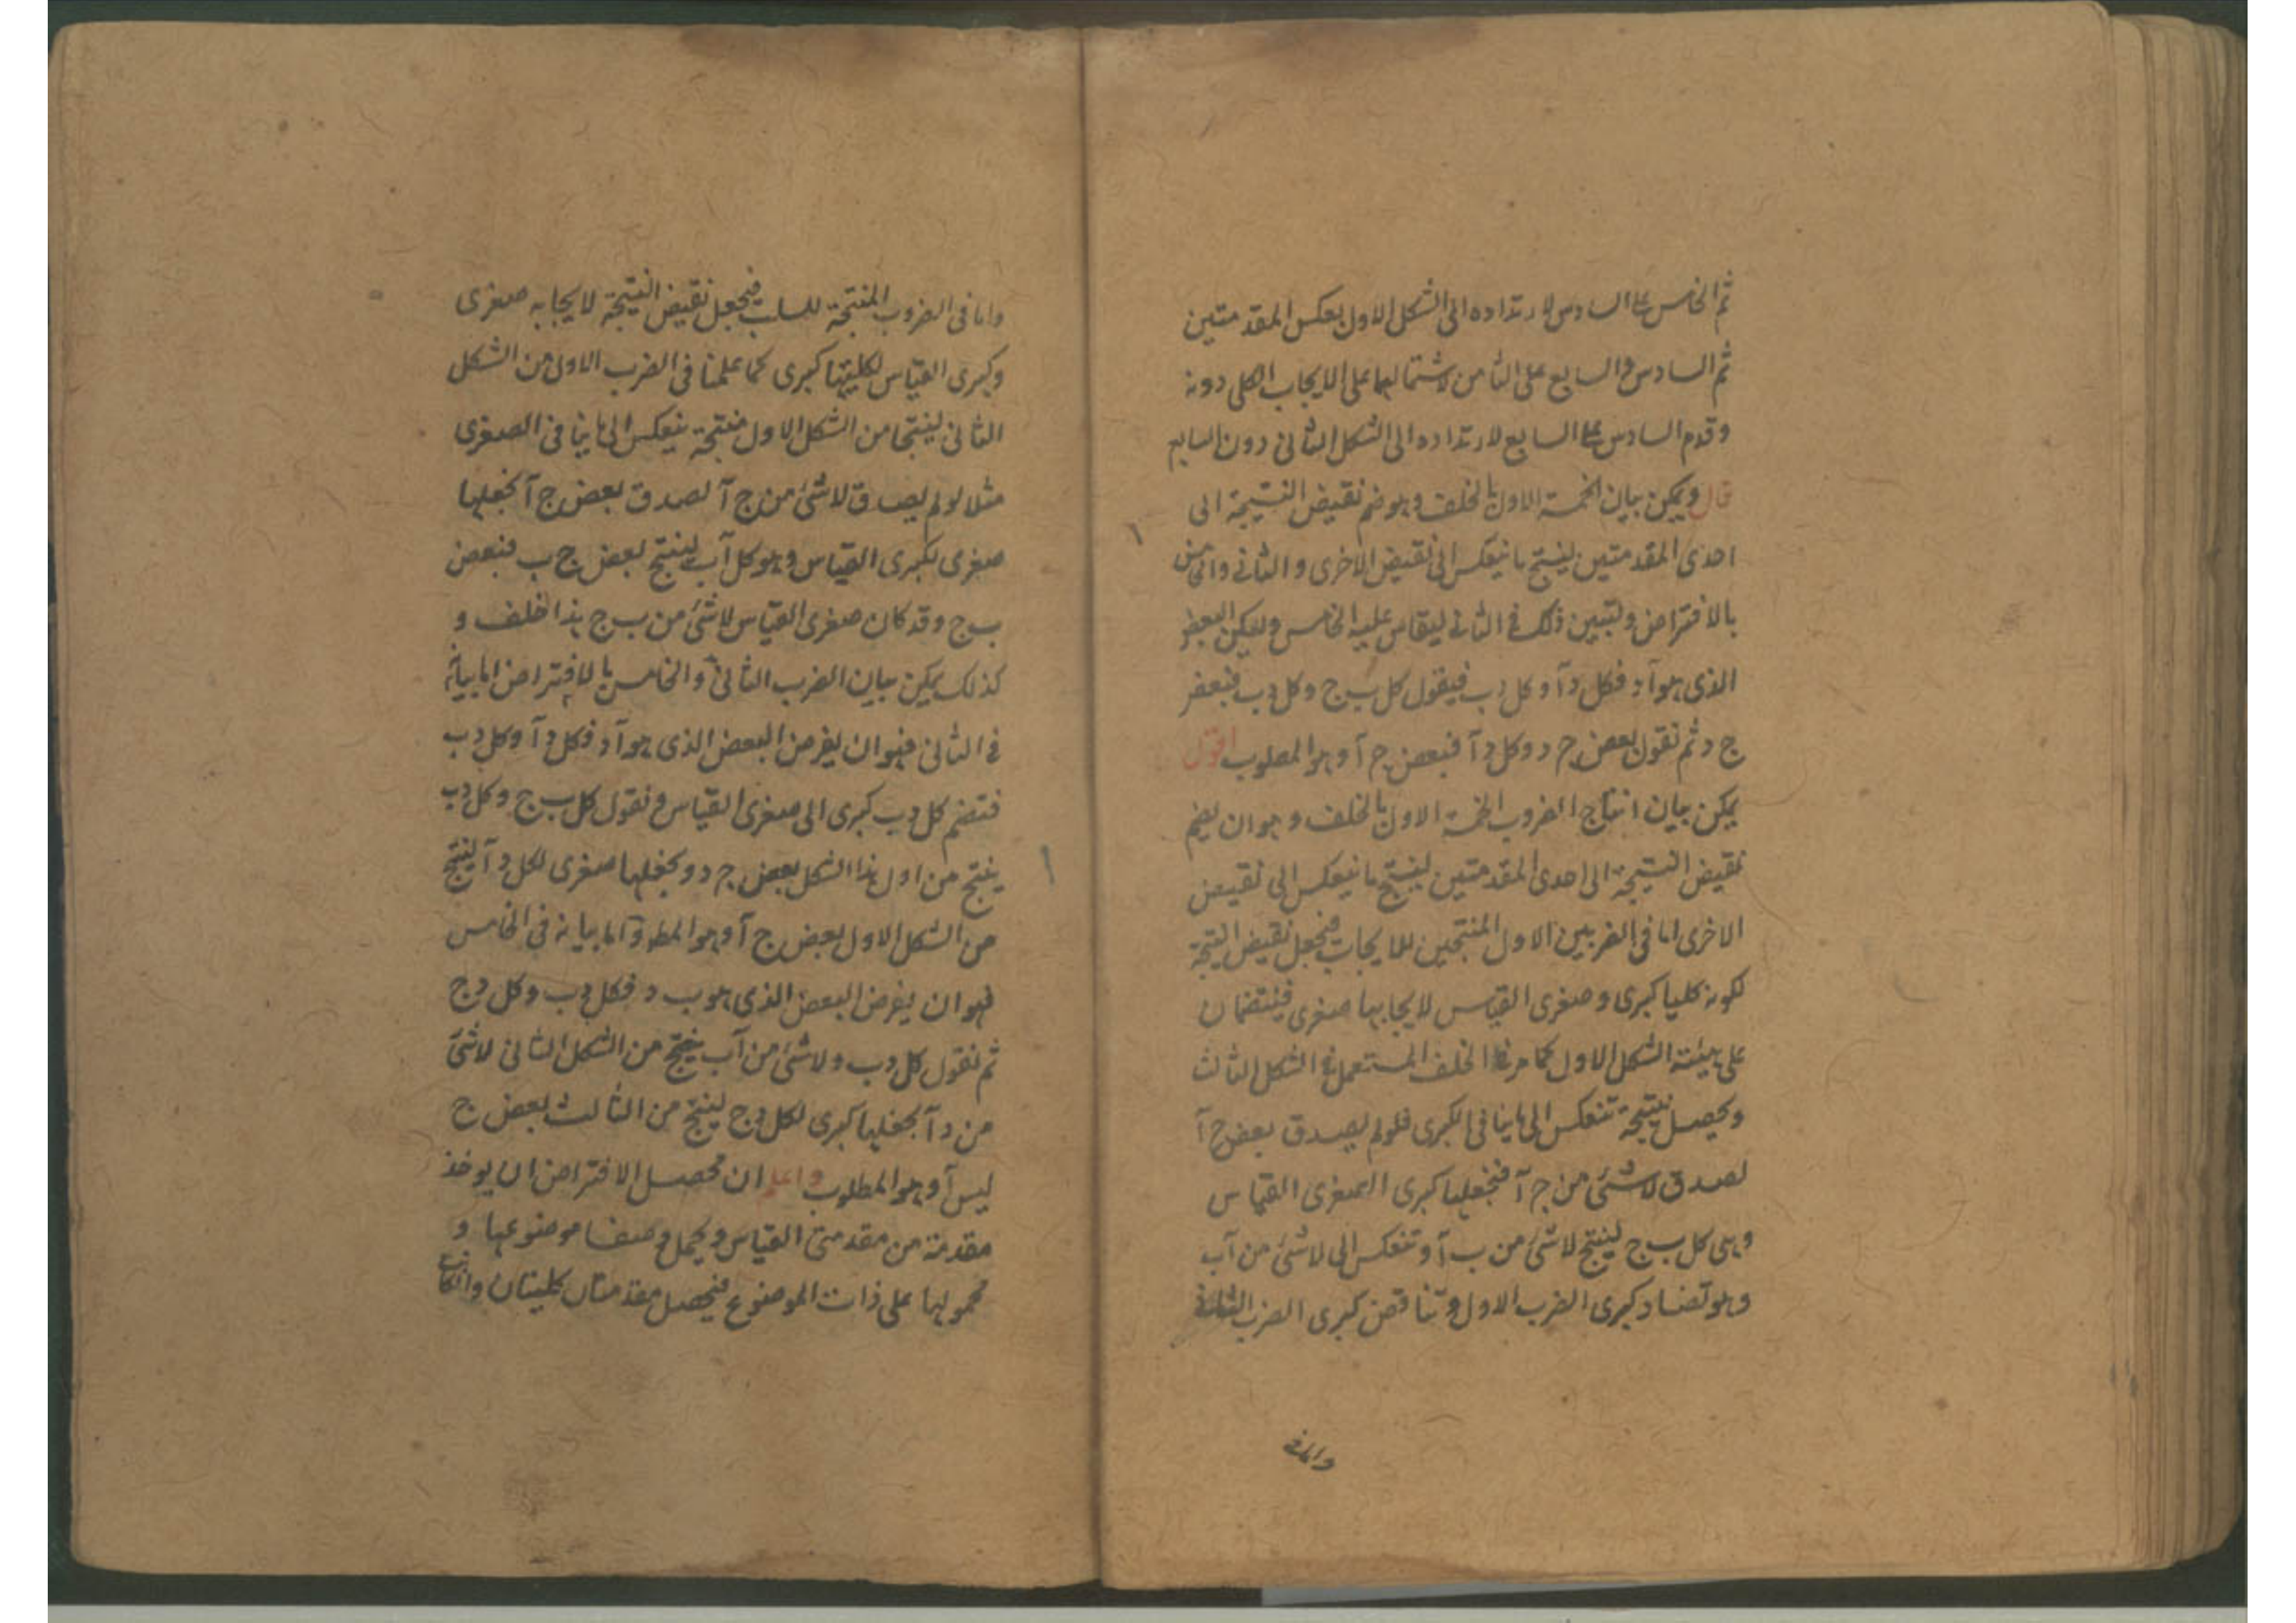 ثم الخامس على السادس لارتداده الى الشكل الاول بعكس المقدمتين
ثم السادس والسابع على الثامن لاشتمالهما على الايجاب الكلى دونه
وقدم السادس على السابع لارتداده الى الشكل الثانى دون السابع
قال ويمكن بيان الخمسة الاول بالخلف وهو ضم نقيض النتيجة الى
احدى المقدمتين لينتج ما ينعكس الى نقيض الاخرى والثانى والخامس
بالافتراض ولنبين ذلك فى الثانى ليقاس عليه الخامس وليكن البعض
الذى هو آ د فكل د آ وكل د ب فيقول كل ب ج وكل د ب فبعض
ج د ثم نقول بعض ج د وكل د آ فبعض ج آ وهو المطلوب اقول
يمكن بيان انتاج الضروب الخمسة الاول بالخلف وهو ان يضم
نقيض النتيجة الى احدى المقدمتين لينتج ما ينعكس الى نقيض
الاخرى اما فى الضربين الاول المنتجين للايجاب فنجعل نقيض النتيجة
لكونه كليا كبرى وصغرى القياس لايجابها صغرى فينتضمان
على هيئة الشكل الاول كما مر فى الخلف المستعمل فى الشكل الثالث
ويحصل نتيجة تنعكس الى ما ينافى الكبرى فلولم يصدق بعض ج آ
لصدق لا شئ من ج آ فنجعلها كبرى الصغرى القياس
وهى كل ب ج لينتج لا شئ من ب آ وتنعكس الى لا شئ من آ ب
وهو تضاد كبرى الضرب الاول وتناقض كبرى الضرب
واما فى
واما فى الضروب المنتجة للسلب فنجعل نقيض النتيجة لايجابه صغرى
وكبرى القياس لكليتها كبرى كما علمنا فى الضرب الاول من الشكل
الثانى لينتجا من الشكل الاول منتجة ينعكس الى ما ينافى الصغرى
مثلا لولم يصدق لا شئ من ج آ لصدق بعض ج آ نجعلها
صغرى لكبرى القياس وهو كل آ ب لينتج بعض ج ب فبعض
ب ج وقد كان صغرى القياس لا شئ من ب ج هذا خلف و
كذلك يمكن بيان الضرب الثانى والخامس بالافتراض اما بيانه
فى الثانى فهو ان يفرض البعض الذى هو آ د فكل د آ وكل د ب
فنتضم كل د ب كبرى الى صغرى القياس ونقول كل ب ج وكل د ب
ينتج من اول هذا الشكل بعض ج د ونجعلها صغرى لكل د آ لينتج
من الشكل الاول بعض ج آ وهو المط واما بيانه فى الخامس
فهو ان يفرض البعض الذى هو ب د فكل د ب وكل د ج
ثم نقول كل د ب ولا شئ من آ ب ينتج من الشكل الثانى لا شئ
من د آ نجعلها كبرى لكل د ج لينتج من الثالث بعض ج
ليس آ وهو المطلوب واعلم ان محصل الافتراض ان يوخذ
مقدمة من مقدمتى القياس ويحمل وصفا موضوعها و
محمولها على ذات الموضوع فيحصل مقدمتان كليتان وان كانت